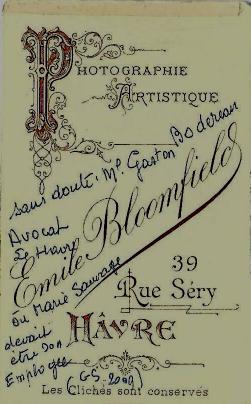 PHOTOGRAPHIE
ARTISTIQUE
sans doute: Mr. Gaston Bodereau
Avocat
Le Havre
Emile Bloomfield
ou Marie Sauvage
39
Rue Séry
devait
être son
HÂVRE
Employée
(GS-2009)
Les Clichés sont conservés